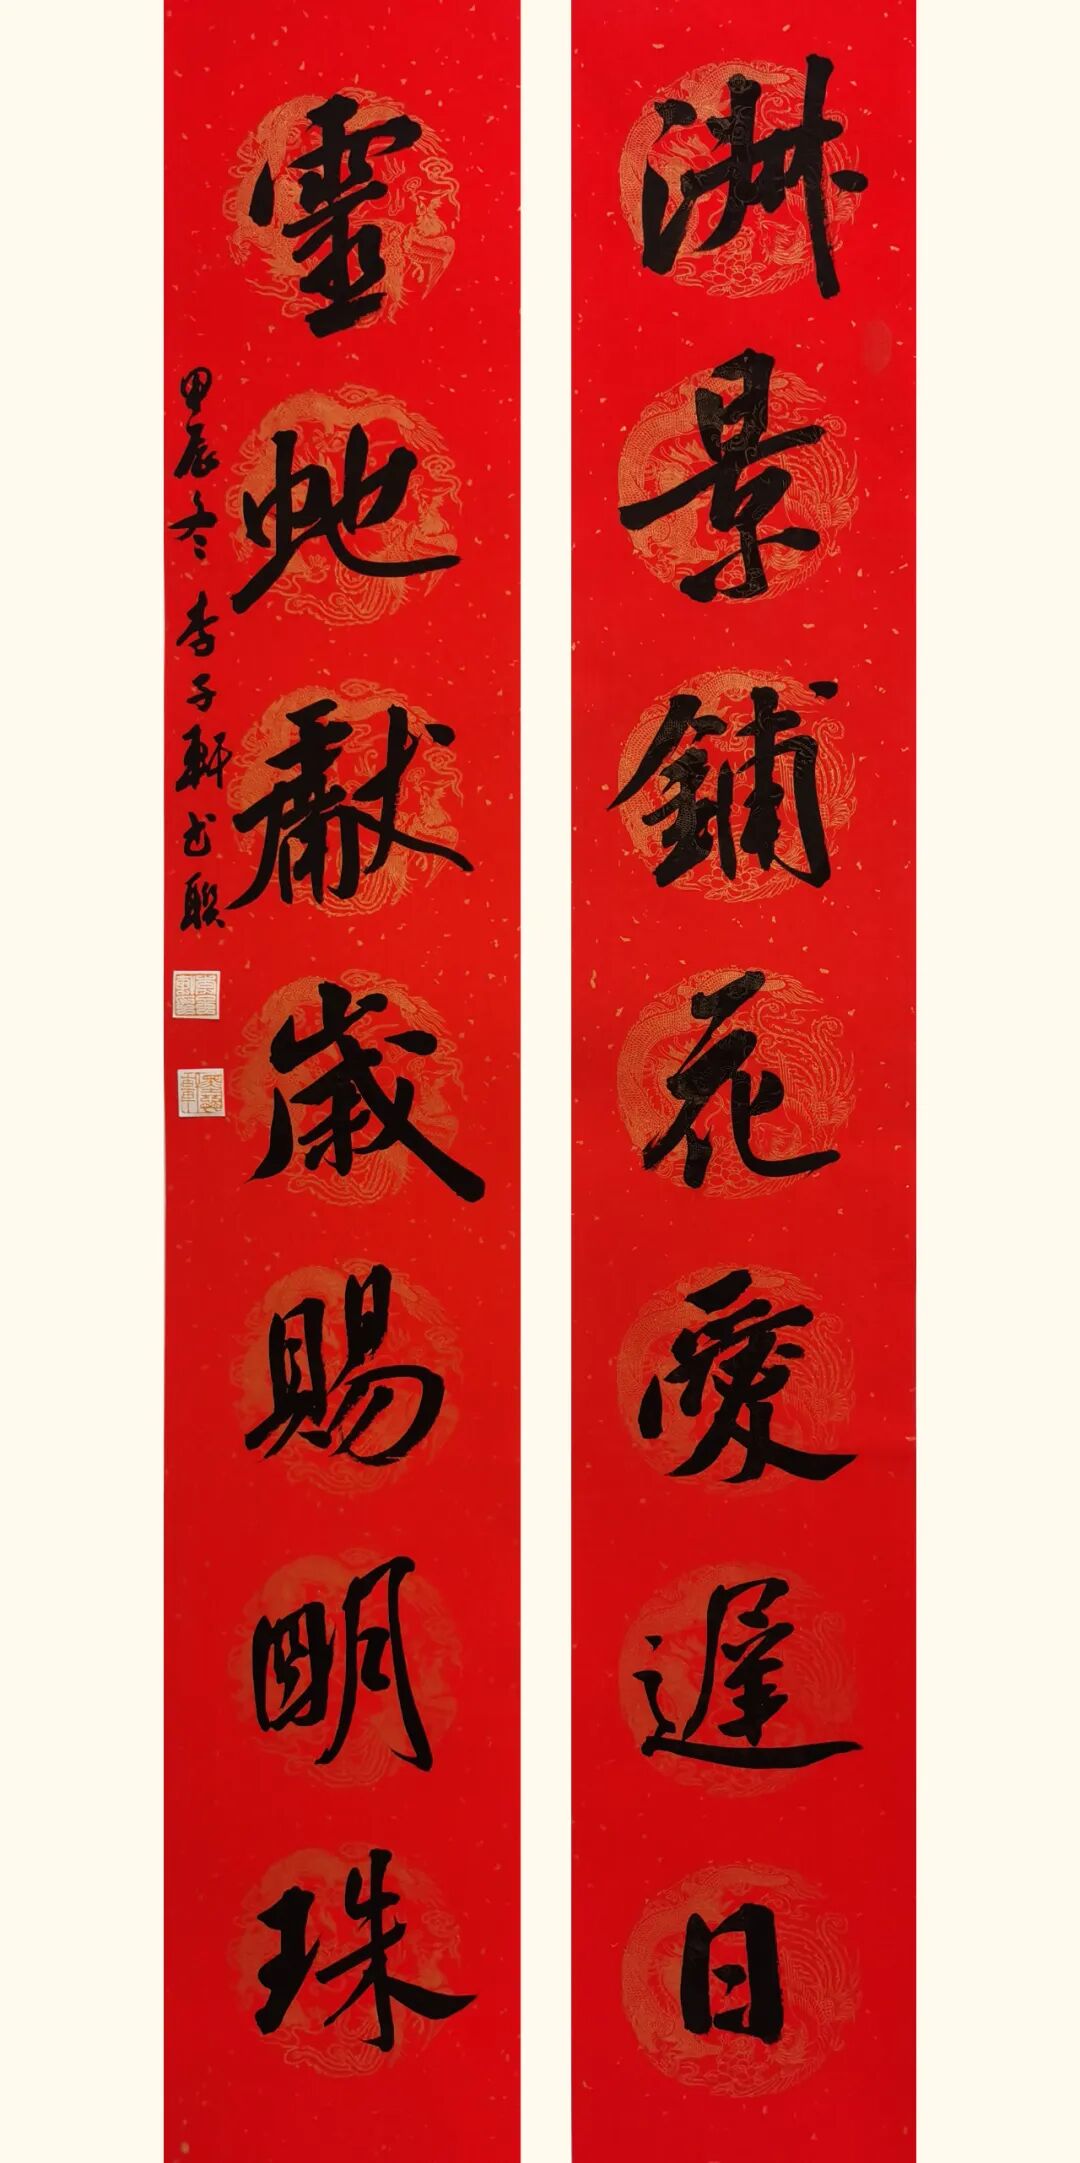 淑景鋪花愛遲日
靈虵獻歲賜明珠
甲辰冬李子軒書聯